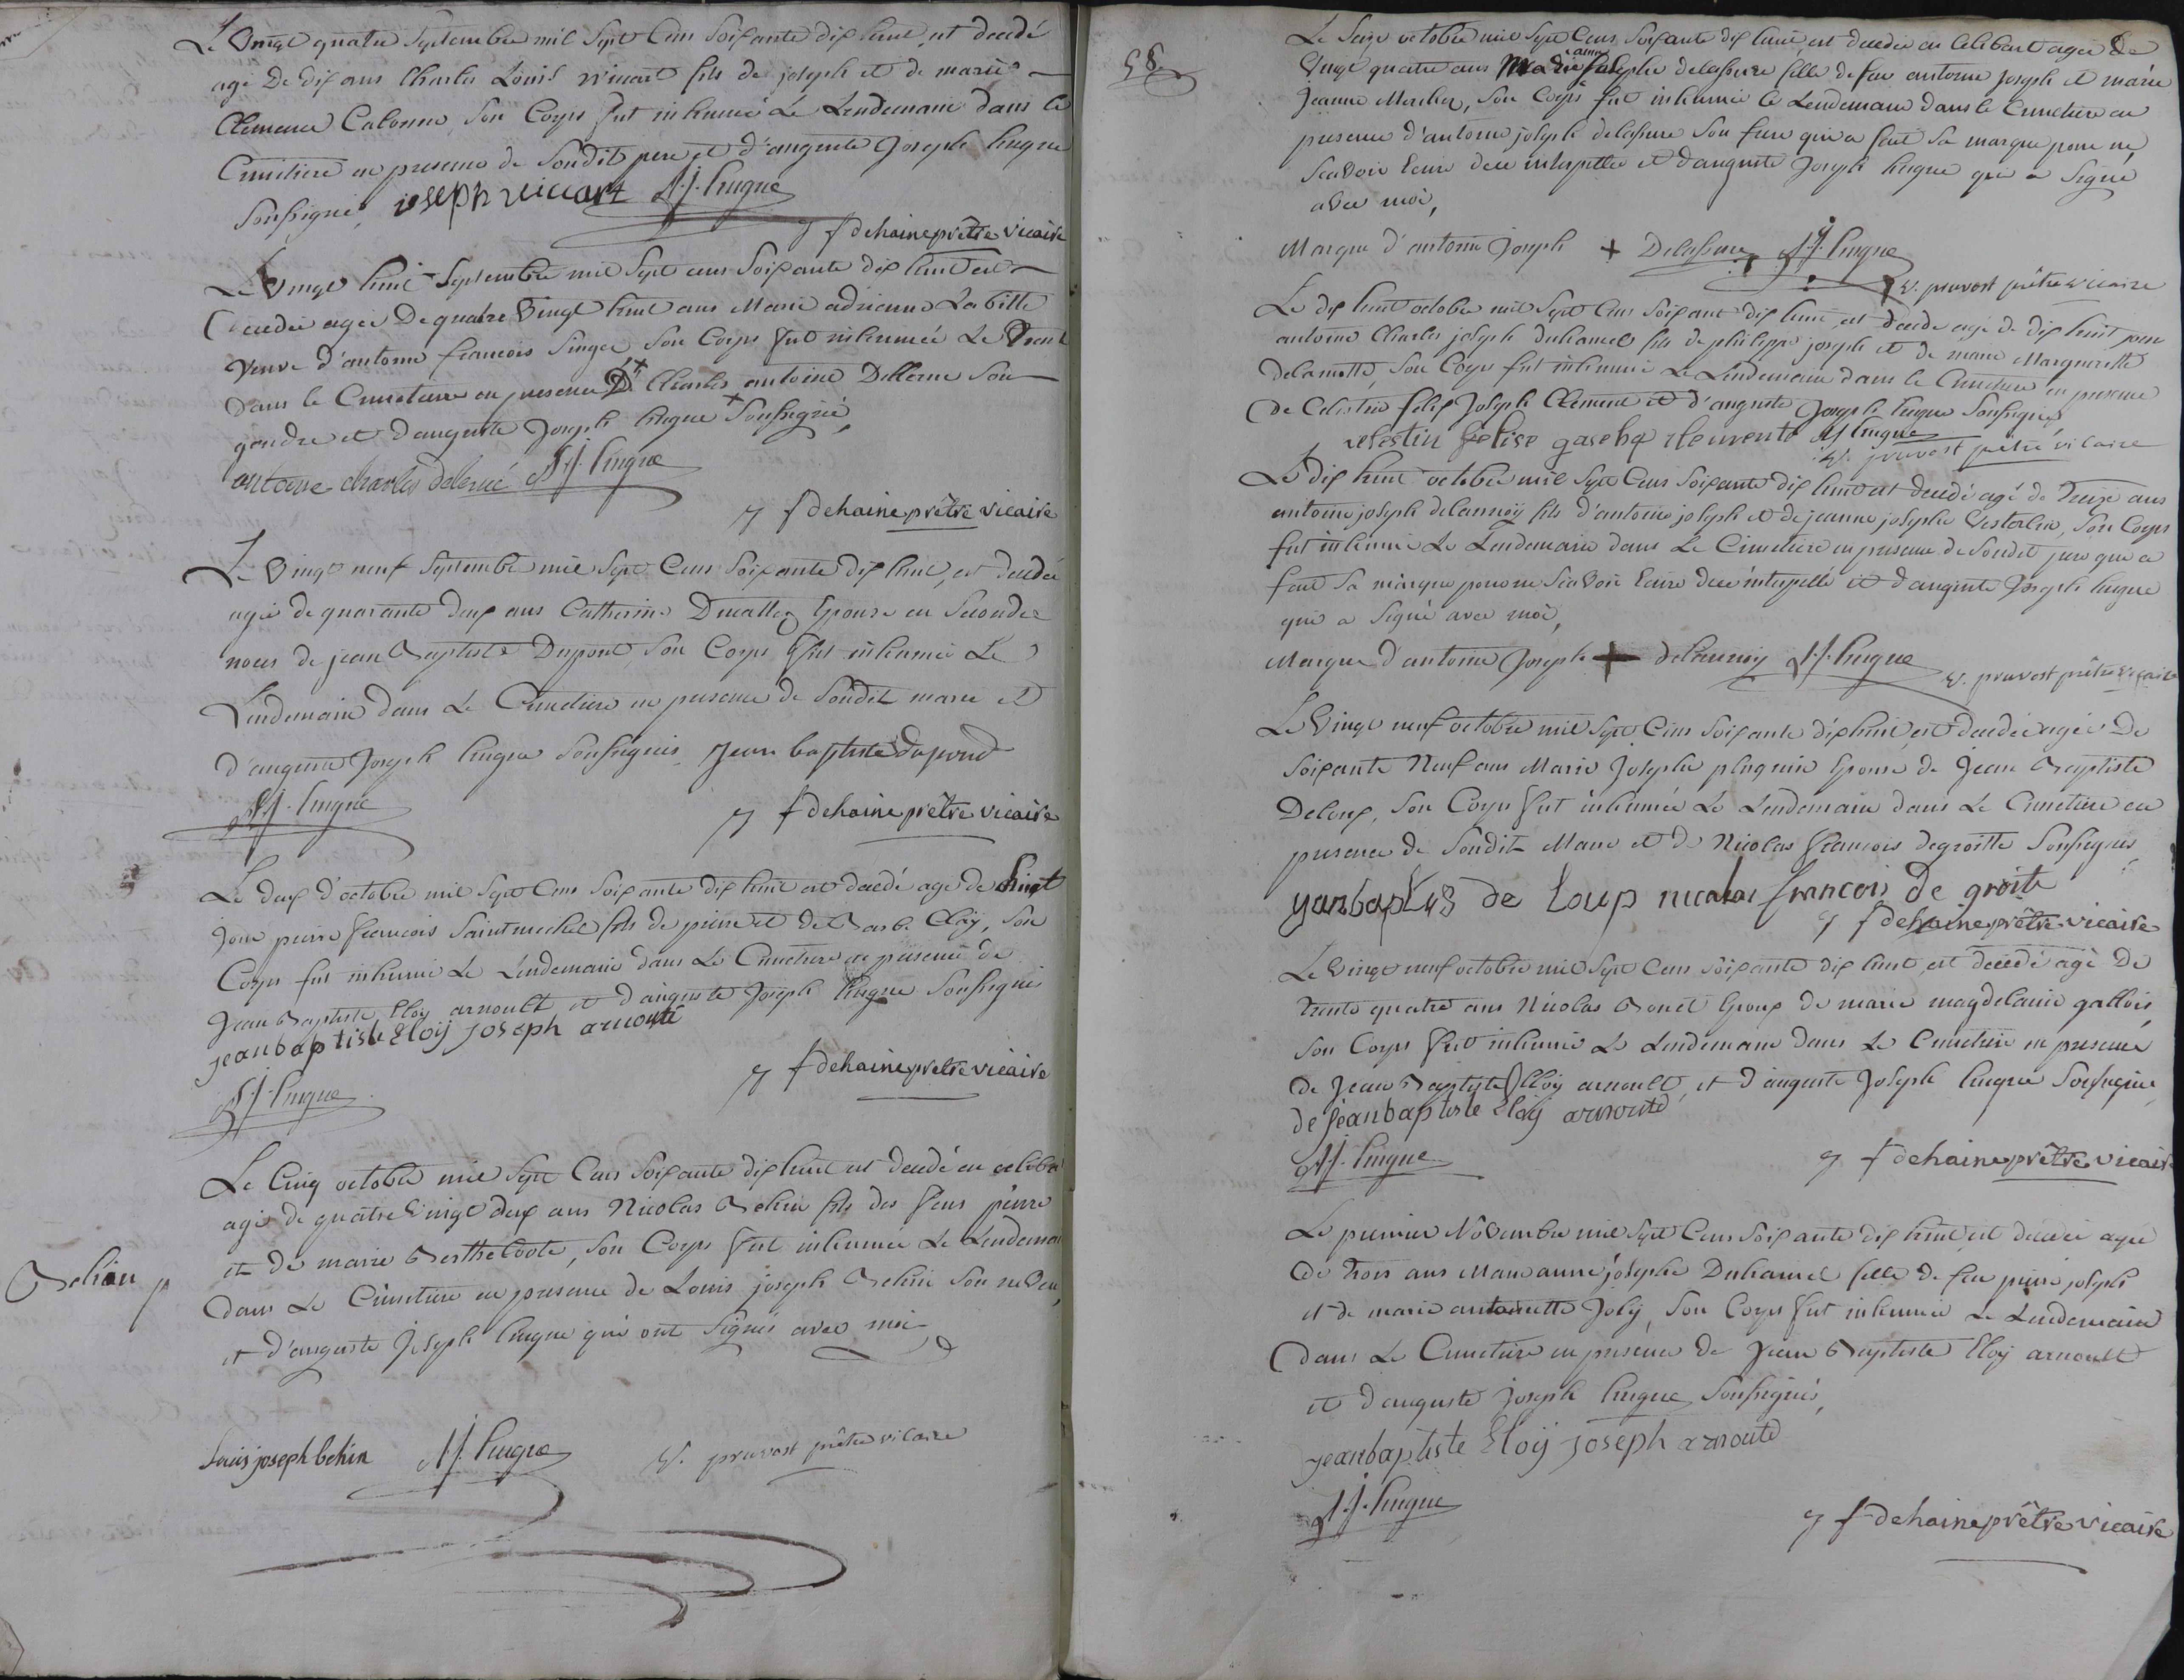 Le Vingt quatre Septembre mil Sept Cens Soixante dix huit, est decedé
agé De dix ans Charles Louis vicart fils de joseph et de marie
Clemence Calonne, Son Corps fut inhumé Le Lendemain dans le
Cimetiere en presence de Sondit pere et d'auguste Joseph hugue
Soussignés, joseph viccart A.J. hugue
f dehaine prêtre vicaire
Le Vingt huit Septembre mil Sept cens Soixante dix huit est
Decedée agée De quatre Vingt huit ans Marie adrienne Labitte
Veuve d'antoine francois Singer, Son Corps fut inhumée Le Trent
Dans le Cimetiere en presence De Charles antoine Dellerue Son
gendre et d'auguste Joseph hugue Soussignés,
antoine charles delerue A.J. hugue
f dehaine prêtre vicaire
Le Vingt neuf Septembre mil Sept Cens Soixante dix huit, est decedée
agée de quarante deux ans Catherine Ducattez Epouse en Secondes
noces de jean Baptiste Dupont, Son Corps fut inhumée Le
Lendemain dans Le Cimetiere en presence de Sondit mari et
d'auguste Joseph hugue Soussignés. Jean baptiste dupond
A.J. hugue
f dehaine prêtre vicaire
Le deux d'octobre mil Sept Cens Soixante dix huit est decedé agé de huit
Jour pierre francois Saintmichel fils de pierre et de Barbe Clay, Son
Corps fut inhumé Le Lendemain dans Le Cimetiere en presence de
Jean Baptiste Eloy arnoult et d'auguste Joseph hugue Soussignés
jeanbaptiste Eloij joseph arnoute
A.J. hugue
f dehaine prêtre vicaire
Behin
Le Cinq octobre mil Sept Cens Soixante dix huit est decedé en celibat
agé de quatre Vingt deux ans Nicolas Behin fils des feus pierre
et de marie Berthe Coote, Son Corps fut inhumée Le Lendemain
dans Le Cimetiere en presence de Louis joseph Behin Son neveu,
et d'auguste Joseph hugue qui ont Signés avec moi
Louis joseph behin A.J. hugue V. pruvost prêtre vicaire
58
Le Seize octobre mil Sept Cens Soixante dix huit, est decedée en Celibat agée De
Vingt quatre ans Marie anne Josephe delassure fille de feu antoine Joseph et marie
Jeanne Mercher, Son Corps fut inhumée le Lendemain dans le Cimetiere en
presence d'antoine joseph delassure Son frere qui a fait Sa marque pour ne,
Scavoir Ecrire dece interpellé et d'auguste Joseph hugue qui a Signé
avec moi,
Marque d'antoine Joseph + Delassure A.J. hugue
V. pruvost prêtre vicaire
Le dix huit octobre mil Sept Cens Soixant dix huit, est decedé agé de dix huit jour
antoine Charles joseph duhamel fils de philippe joseph et de marie Marguerite
delamotte, Son Corps fut inhumé Le Lendemain dans le Cimetiere en presence
de Celestin felix Joseph Clement et d'auguste Joseph hugue Soussignés
selestin felise gosehq clemente A.J. hugue
V. pruvost prêtre vicaire
Le dix huit octobre mil Sept Cens Soixante dix huit est decedé agé de Treize ans
antoine joseph delannoy fils d'antoine joseph et de jeanne josephe Vestalin, Son Corps
fut inhumé Le Lendemain dans Le Cimetiere en presence de Sondit pere qui a
fait Sa marque pour ne Scavoir Ecrire dece interpellé et d'auguste Joseph hugue
qui a Signé avec moi,
Marque d'antoine Joseph + delannoy A.J. hugue
V. pruvost prêtre vicaire
Le Vingt neuf octobre mil Sept Cens Soixante dix huit, est decedée agée De
Soixante Neuf ans Marie Josephe pluquin Epouse de Jean Baptiste
Deloup, Son Corps fut inhumée Le Lendemain dans Le Cimetiere en
presence de Sondit Mari et de Nicolas francois degroitte Soussignés,
yanbaptis de Loup nicolas francois de groite
f dehaine prêtre vicaire
Le Vingt neuf octobre mil Sept Cens Soixante dix huit est decedé agé De
trente quatre ans Nicolas Bonet Epoux de marie magdelaine gallois,
Son Corps fut inhumé Le Lendemain dans Le Cimetiere en presence
de Jean Baptiste Elloy arnoult, et d'auguste Joseph hugue Soussignés,
de jeanbaptiste Eloij arnoute
A.J. hugue
f dehaine prêtre vicaire
Le premier Novembre mil Sept Cens Soixante dix huit est decedée agée
de Trois ans Marie anne josephe Duhamel fille de feu pierre joseph
et de marie antoinette Joly, Son Corps fut inhumée Le Lendemain
dans Le Cimetiere en presence de Jean Baptiste Eloy arnoult
et d'auguste joseph hugue Soussignés,
jeanbaptiste Eloij joseph arnoute
A.J. hugue
f dehaine prêtre vicaire